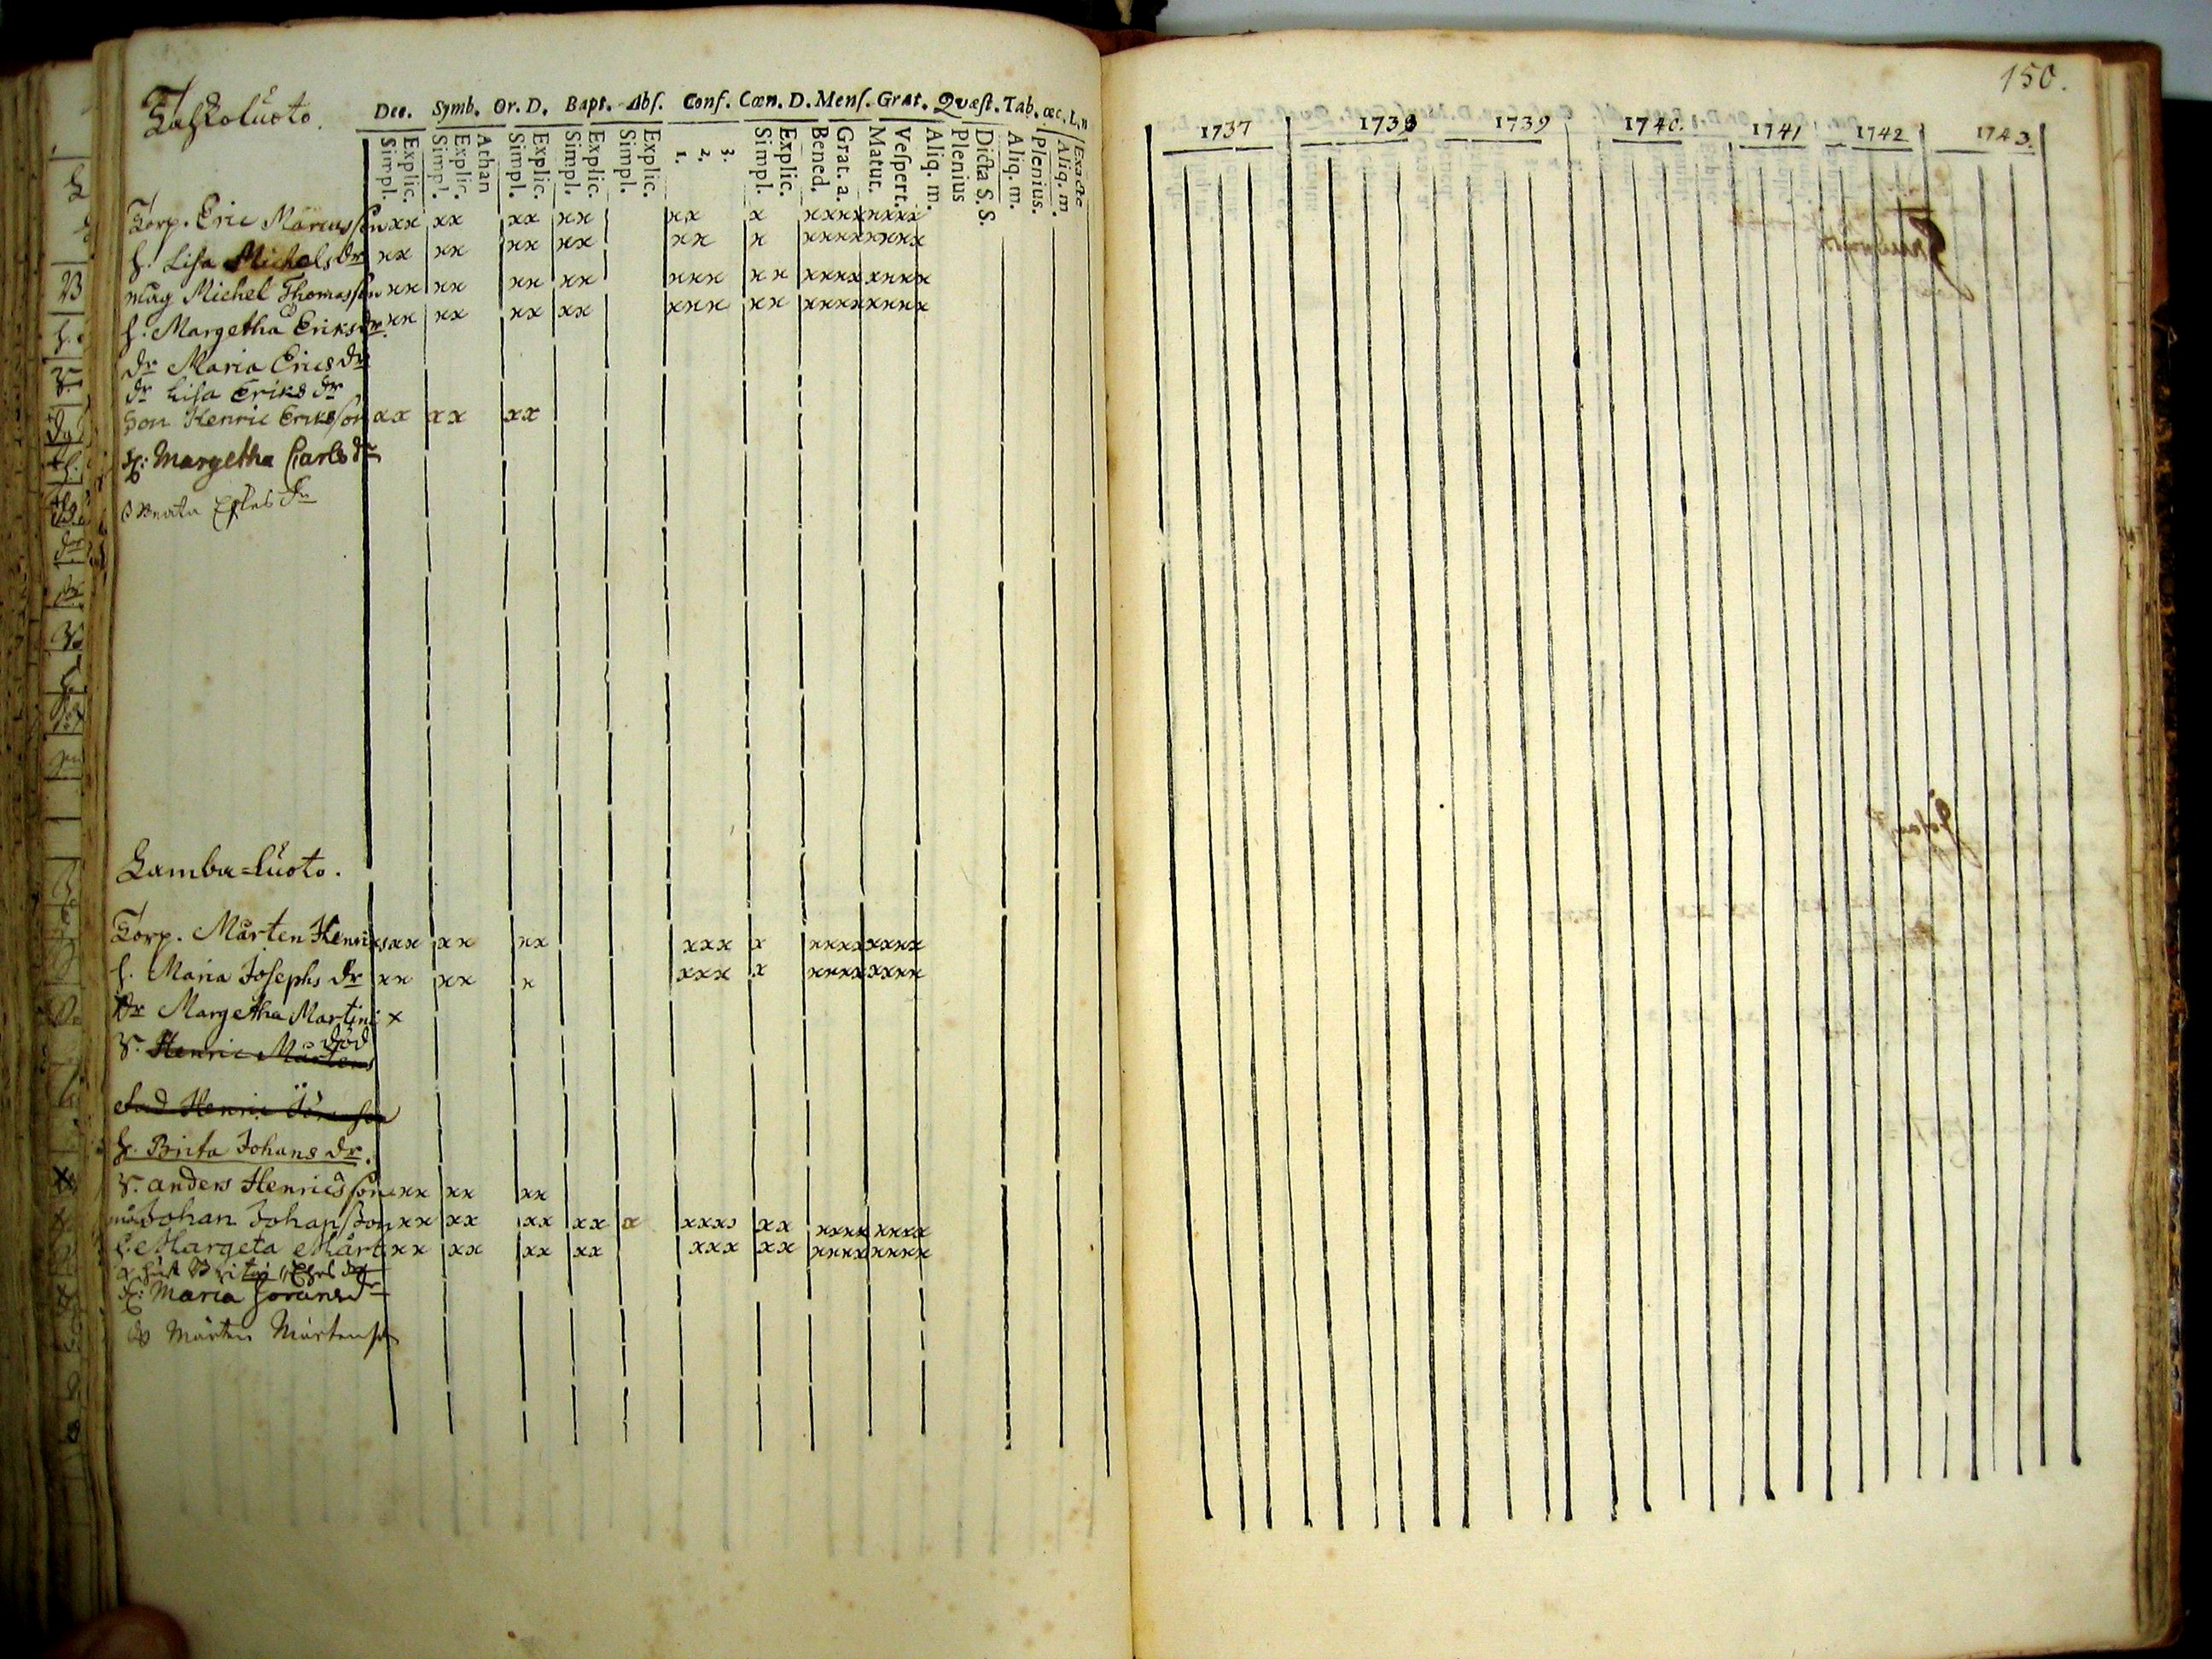 Laskoluoto.
Dec. Symb. Or. D. Bapt. Abs. Conf. Cœn. D. Mens. Grat. Quæst. Tab. œc. L, n
Simpl. Explic. Simpl. Explic. Athan Simpl. Explic. Simpl. Explic. Simpl. Explic. 1. 2. 3. Simpl. Explic. Bened. Grat. a. Matut. Vespert. Aliq. m. Plenius Dicta S. S. Aliq. m. Plenius. Aliq. m. Exacte
Torp. Eric Marcusson xx xx xx xx xx x xxxx xxxx
h. Lisa Michelsdr xx xx xx xx xx x xxxx xxxx
måg Michel Thomasson xx xx xx xx xxx xx xxxx xxxx
h. Margetha Eriksdr. xx xx xx xx xxx xx xxxx xxxx
dr Maria Ericsdr
dr Lisa Eriks dr
Son Henric Eriksson xx xx xx
H: Margetha Carls dr
Beata dr
Lamba=luoto.
Torp. Mårten Henrics xx xx xx xxx x xxxx xxxx
h. Maria Josephs dr xx xx x xxx x xxxx xxxx
dr Margetha Martini x
S. Henric Mårtens död
Henric Jöransson
h. Brita Johans dr.
S. anders Henricsson xx xx xx
måg Johan Johansson xx xx xx xx x xxxx xx xxxx xxxx
h. Margeta Märt xx xx xx xx xxx xx xxxx xxxx
Brita dr
H: Maria Joransdr
Mårten Mårtenss
150.
1737 1738 1739 1740. 1741 1742 1743.